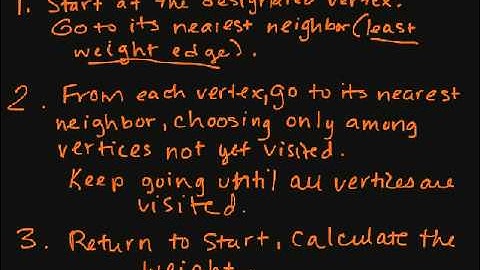 1. Start at the designated vertex.
Go to its nearest neighbor (least
weight edge).
2. From each vertex, go to its nearest
neighbor, choosing only among
vertices not yet visited.
Keep going until all vertices are
visited.
3. Return to Start, Calculate the
weight